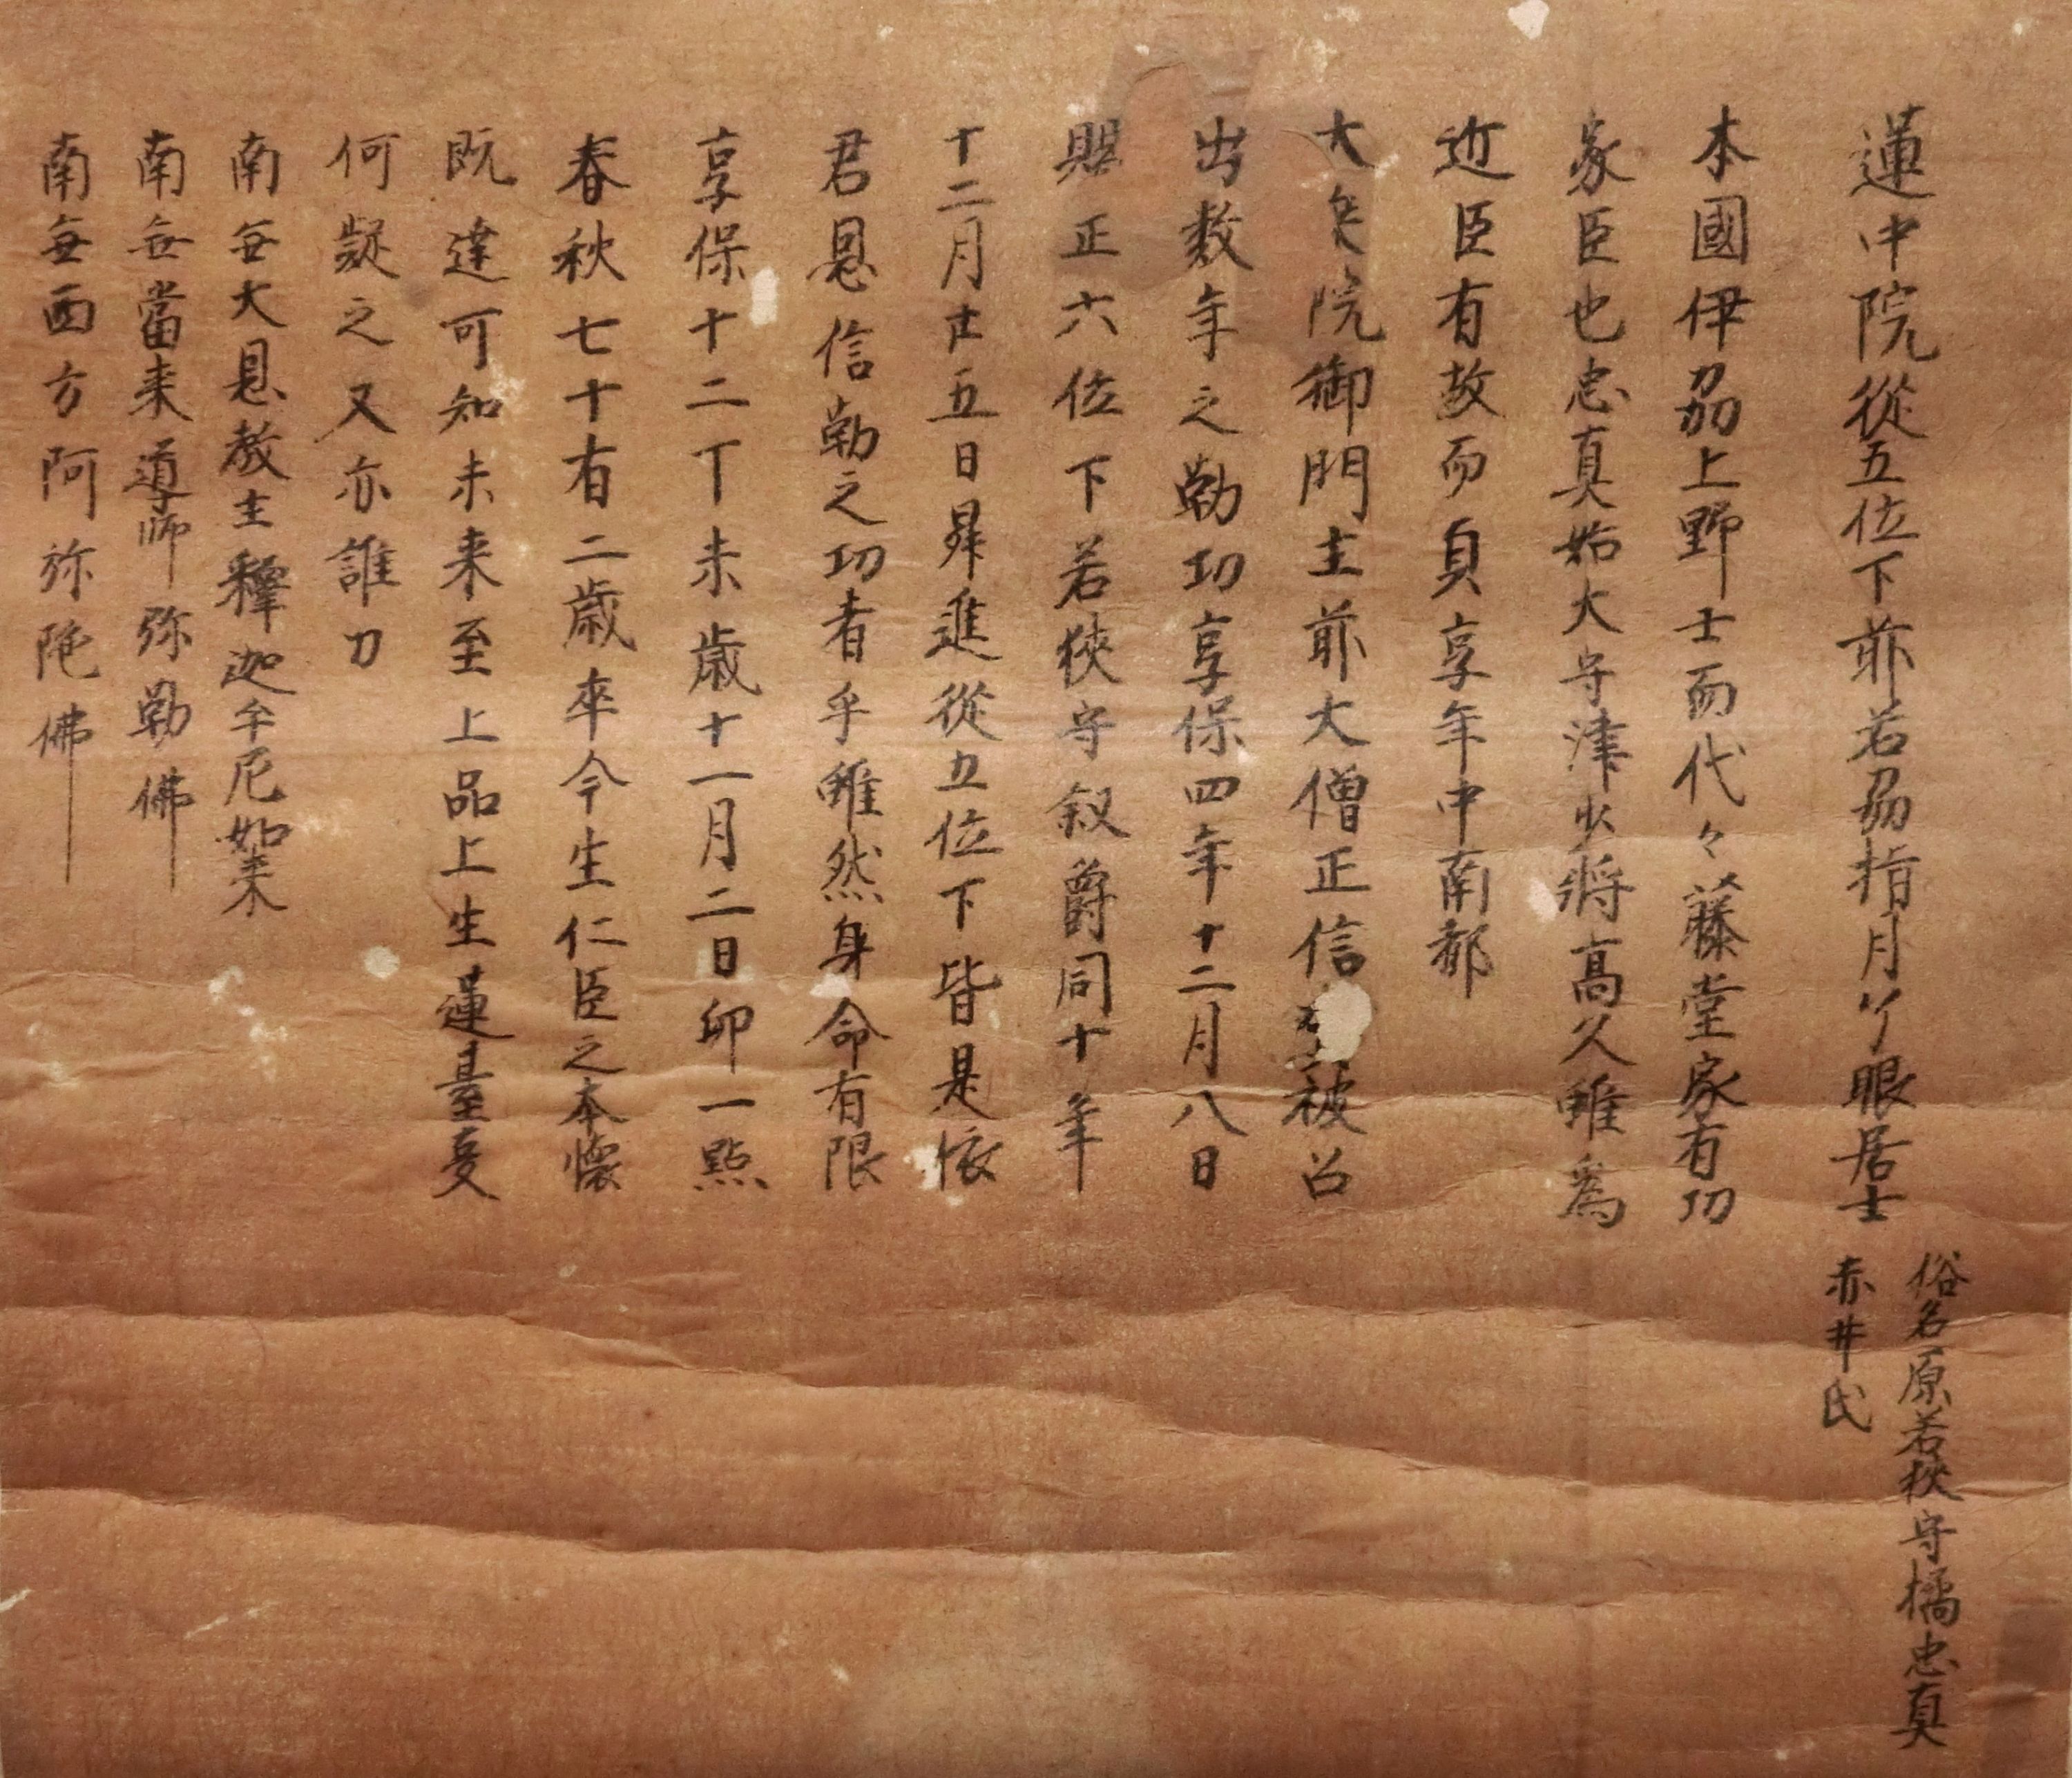 蓮中院從五位下前若刕指月了眼居士
俗名原若狹守橘忠真
赤井氏
本國伊刕上野士而代々藤堂家有功
家臣也忠真始大守津少將高久雖為
近臣有故而貞享年中南都
大乘院御門主前大僧正信 被召
出数年之勤功享保四年十二月八日
賜正六位下若狹守叙爵同十年
十二月廿五日昇進從五位下皆是依
君恩信勤之功者乎雖然身命有限
享保十二丁未歳十一月二日卯一點
春秋七十有二歳卒今生仁臣之本懐
既達可知未来至上品上生蓮臺爰
何疑之又亦誰乃
南無大恩教主釋迦牟尼如来
南無當来導師弥勒佛
南無西方阿弥陀佛